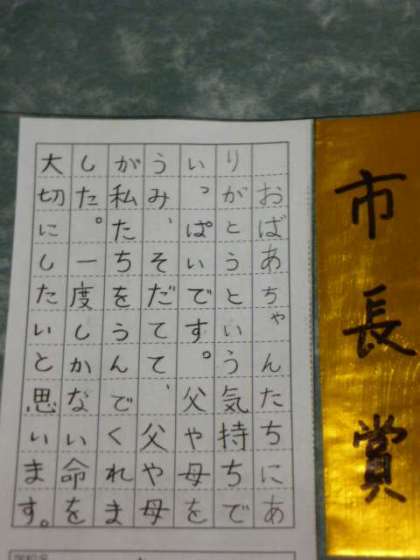 市長賞
おばあちゃんたちにあ
りがとうという気持ちで
いっぱいです。父や母を
うみ、そだてて、父や母
が私たちをうんでくれま
した。一度しかない命を
大切にしたいと思います。